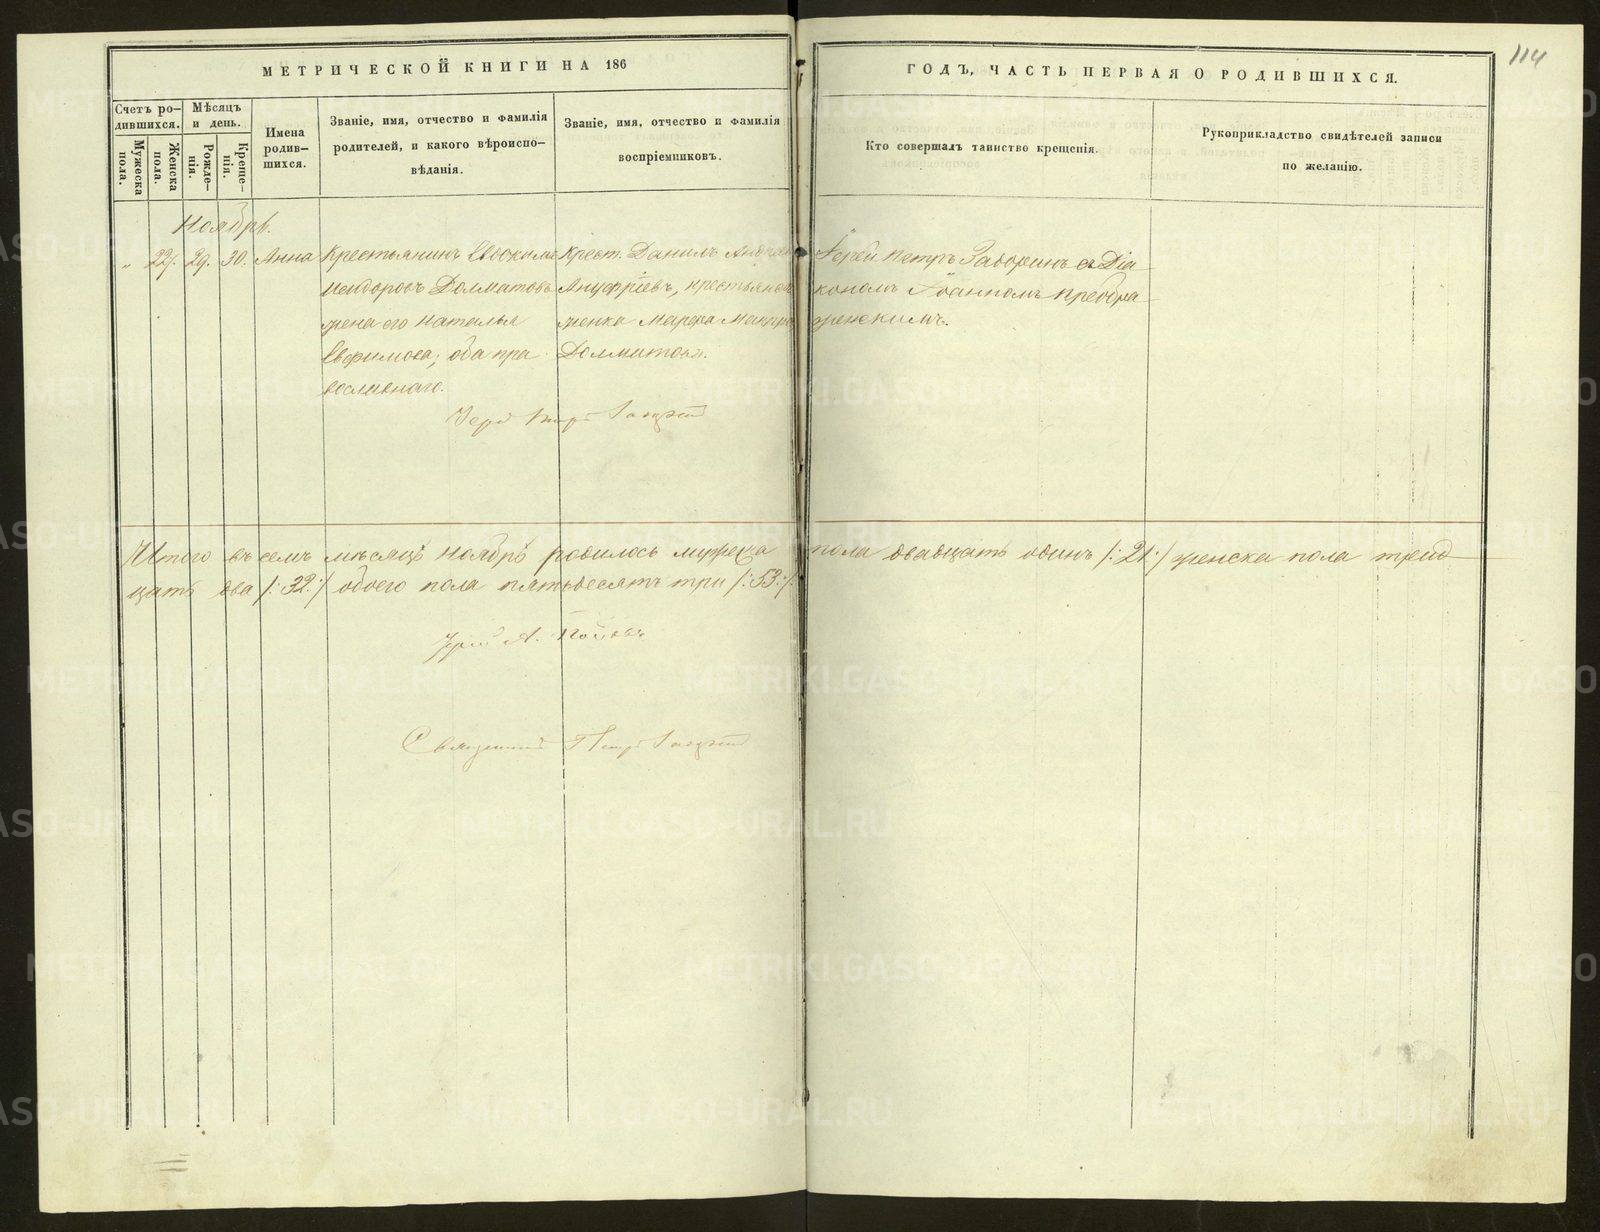 114
МЕТРИЧЕСКОЙ КНИГИ НА 186
ГОДЪ, ЧАСТЬ ПЕРВАЯ О РОДИВШИХСЯ.
Счетъ ро-
дившихся.
Мужеска
пола.
Женска
пола.
Мѣсяцъ
и день.
Рожде-
нія.
Креще-
нія.
Имена
родив-
шихся.
Званіе, имя, отчество и фамилія
родителей, и какого вѣроиспо-
вѣданія.
Званіе, имя, отчество и фамилія
воспріемниковъ.
Кто совершалъ таинство крещенія.
Рукоприкладство свидѣтелей записи
по желанію.
Ноябрь.
„ 22. 29. 30. Анна
Крестьянинъ
Долматовъ
жена его Наталья
Евфимова; оба пра
вославнаго.
Крест. Данилъ
Анцефріевъ,
женка Марѳа
Іерей Петръ съ Діа
кономъ Іоанномъ Преобра
женскимъ.
Іерей Петръ
Итого въ семъ мѣсяцѣ Ноябрѣ родилось мужеска пола двадцать одинъ /:21:/ женска пола трид
цать два /:32:/ обоего пола пятьдесятъ три /:53:/.
Іерей А. Поповъ
Священникъ Петръ
METRIKI.GASO-URAL.RU